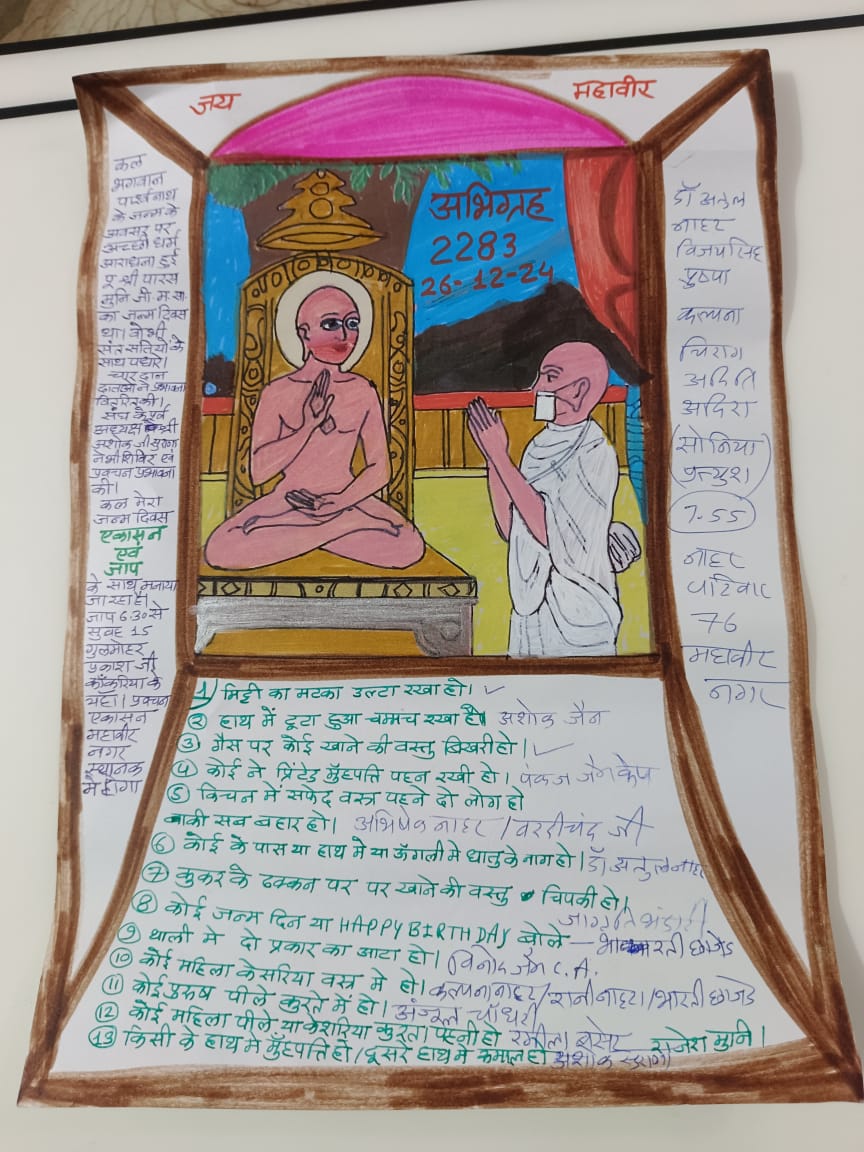 जय
महावीर
अभिग्रह
2283
26-12-24
कल
भगवान
पार्श्वनाथ
के जन्म के
अवसर पर
अच्छी धर्म
आराधना हुई
पू श्री पारस
मुनि जी म सा
का जन्म दिवस
था। वो भी
संत सतियों के
साथ पधारे।
चार दान
दाताओं ने प्रभावना
वितरित की।
संघ के पूर्व
अध्यक्ष श्री
अशोक जी सुराणा
ने भी शिविर एवं
प्रवचन प्रभावना
की।
कल मेरा
जन्म दिवस
एकासन
एवं
जाप
के साथ मनाया
जा रहा है।
जाप 6.30 से
सुबह 15
गुलमोहर
प्रकाश जी
काँकरिया के
यहाँ। प्रवचन
एकासन
महावीर
नगर
स्थानक
में होगा
डॉ अतुल
नाहर
विजयसिंह
पुष्पा
कल्पना
चिराग
अदिति
अदिरा
(सोनिया
प्रत्युश)
7-55
नाहर
परिवार
76
महावीर
नगर
① मिट्टी का मटका उल्टा रखा हो। ✓
② हाथ में टूटा हुआ चम्मच रखा है। अशोक जैन
③ गैस पर कोई खाने की वस्तु बिखरी हो। ✓
④ कोई ने प्रिंटेड मुँहपत्ति पहन रखी हो। पंकज जैन
⑤ किचन में सफेद वस्त्र पहने दो लोग हो
बाकी सब बहार हो। अभिषेक नाहर / वरदीचंद जी
⑥ कोई के पास या हाथ मे या ऊँगली मे धातु के नाग हो। डॉ अतुल नाहर
⑦ कुकर के ढक्कन पर पर खाने की वस्तु चिपकी हो।
जागृति भंडारी
⑧ कोई जन्म दिन या HAPPY BIRTH DAY बोले — भारती छाजेड
⑨ थाली मे दो प्रकार का आटा हो। विनोद जैन C.A.
⑩ कोई महिला केसरिया वस्त्र मे हो। कल्पना नाहर / रानी नाहर / भारती छाजेड
⑪ कोई पुरुष पीले कुरते में हो। चौधरी
⑫ कोई महिला पीले या केशरिया कुरता पहनी हो रमीला
राजेश मुनि।
⑬ किसी के हाथ में मुँहपत्ति हो / दूसरे हाथ में रुमाल हो अशोक सुराणा